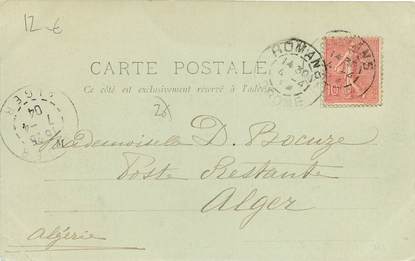 12 €
CARTE POSTALE
Ce côté est exclusivement réservé à l'adresse
ROMANS
DROME
14 30
4 - 4
ALGER
7 - 4
04
26
Mademoiselle D. Bocuze
Poste Restante
Alger
Algérie